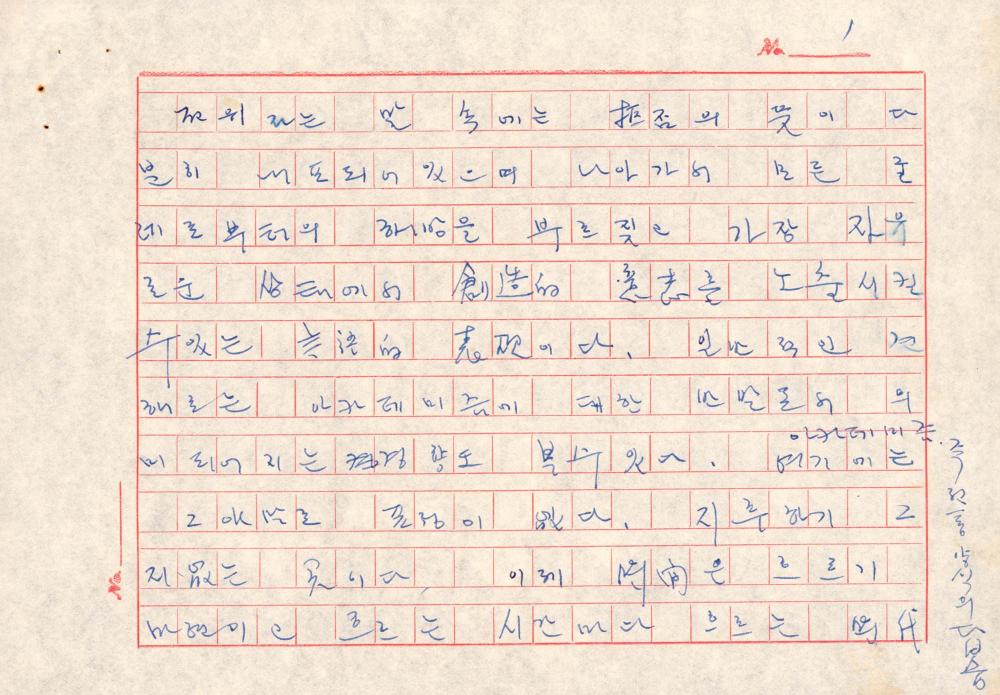 No 1
전위라는 말 속에는 拒否의 뜻이 다
분히 내포되어 있으며 나아가서 모든 굴
레로부터의 해방을 부르짖고 가장 자유
로운 상태에서 創造的 意志를 노출시킬
수 있는 言語的 表現이다. 일반적인 견
해로는 아카데미즘에 대한 반발로서 의
미 되어지는 경향도 볼 수 있다. 여기에는
아카데미즘.
그야말로 표정이 없다. 지루하기 그
지없는 곳이다. 이제 時間은 흐르기
마련이고 흐르는 시간마다 흐르는 時代
즉 전통 양식의 답습
No